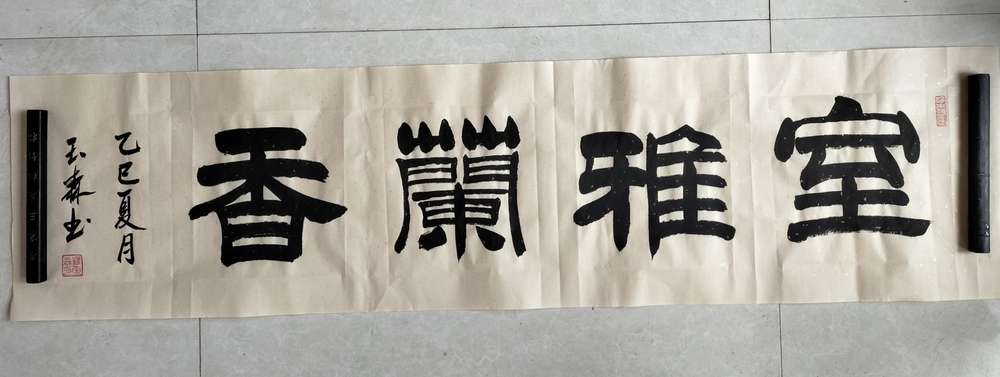 室雅蘭香
乙巳夏月
玉森书